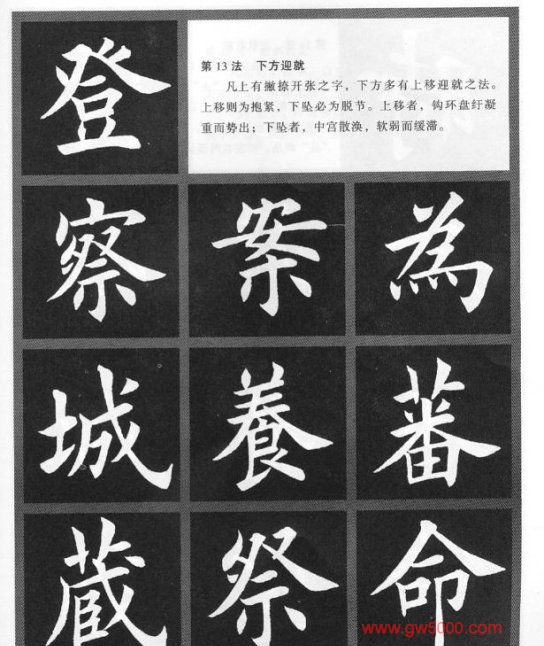 登
第 13 法 下方迎就
凡上有撇捺开张之字，下方多有上移迎就之法。
上移则为抱紧，下坠必为脱节。上移者，钩环盘纡凝
重而势出；下坠者，中宫散涣，软弱而缓滞。
察 案 為
城 養 蕃
蔵 祭 命
www.gw5000.com